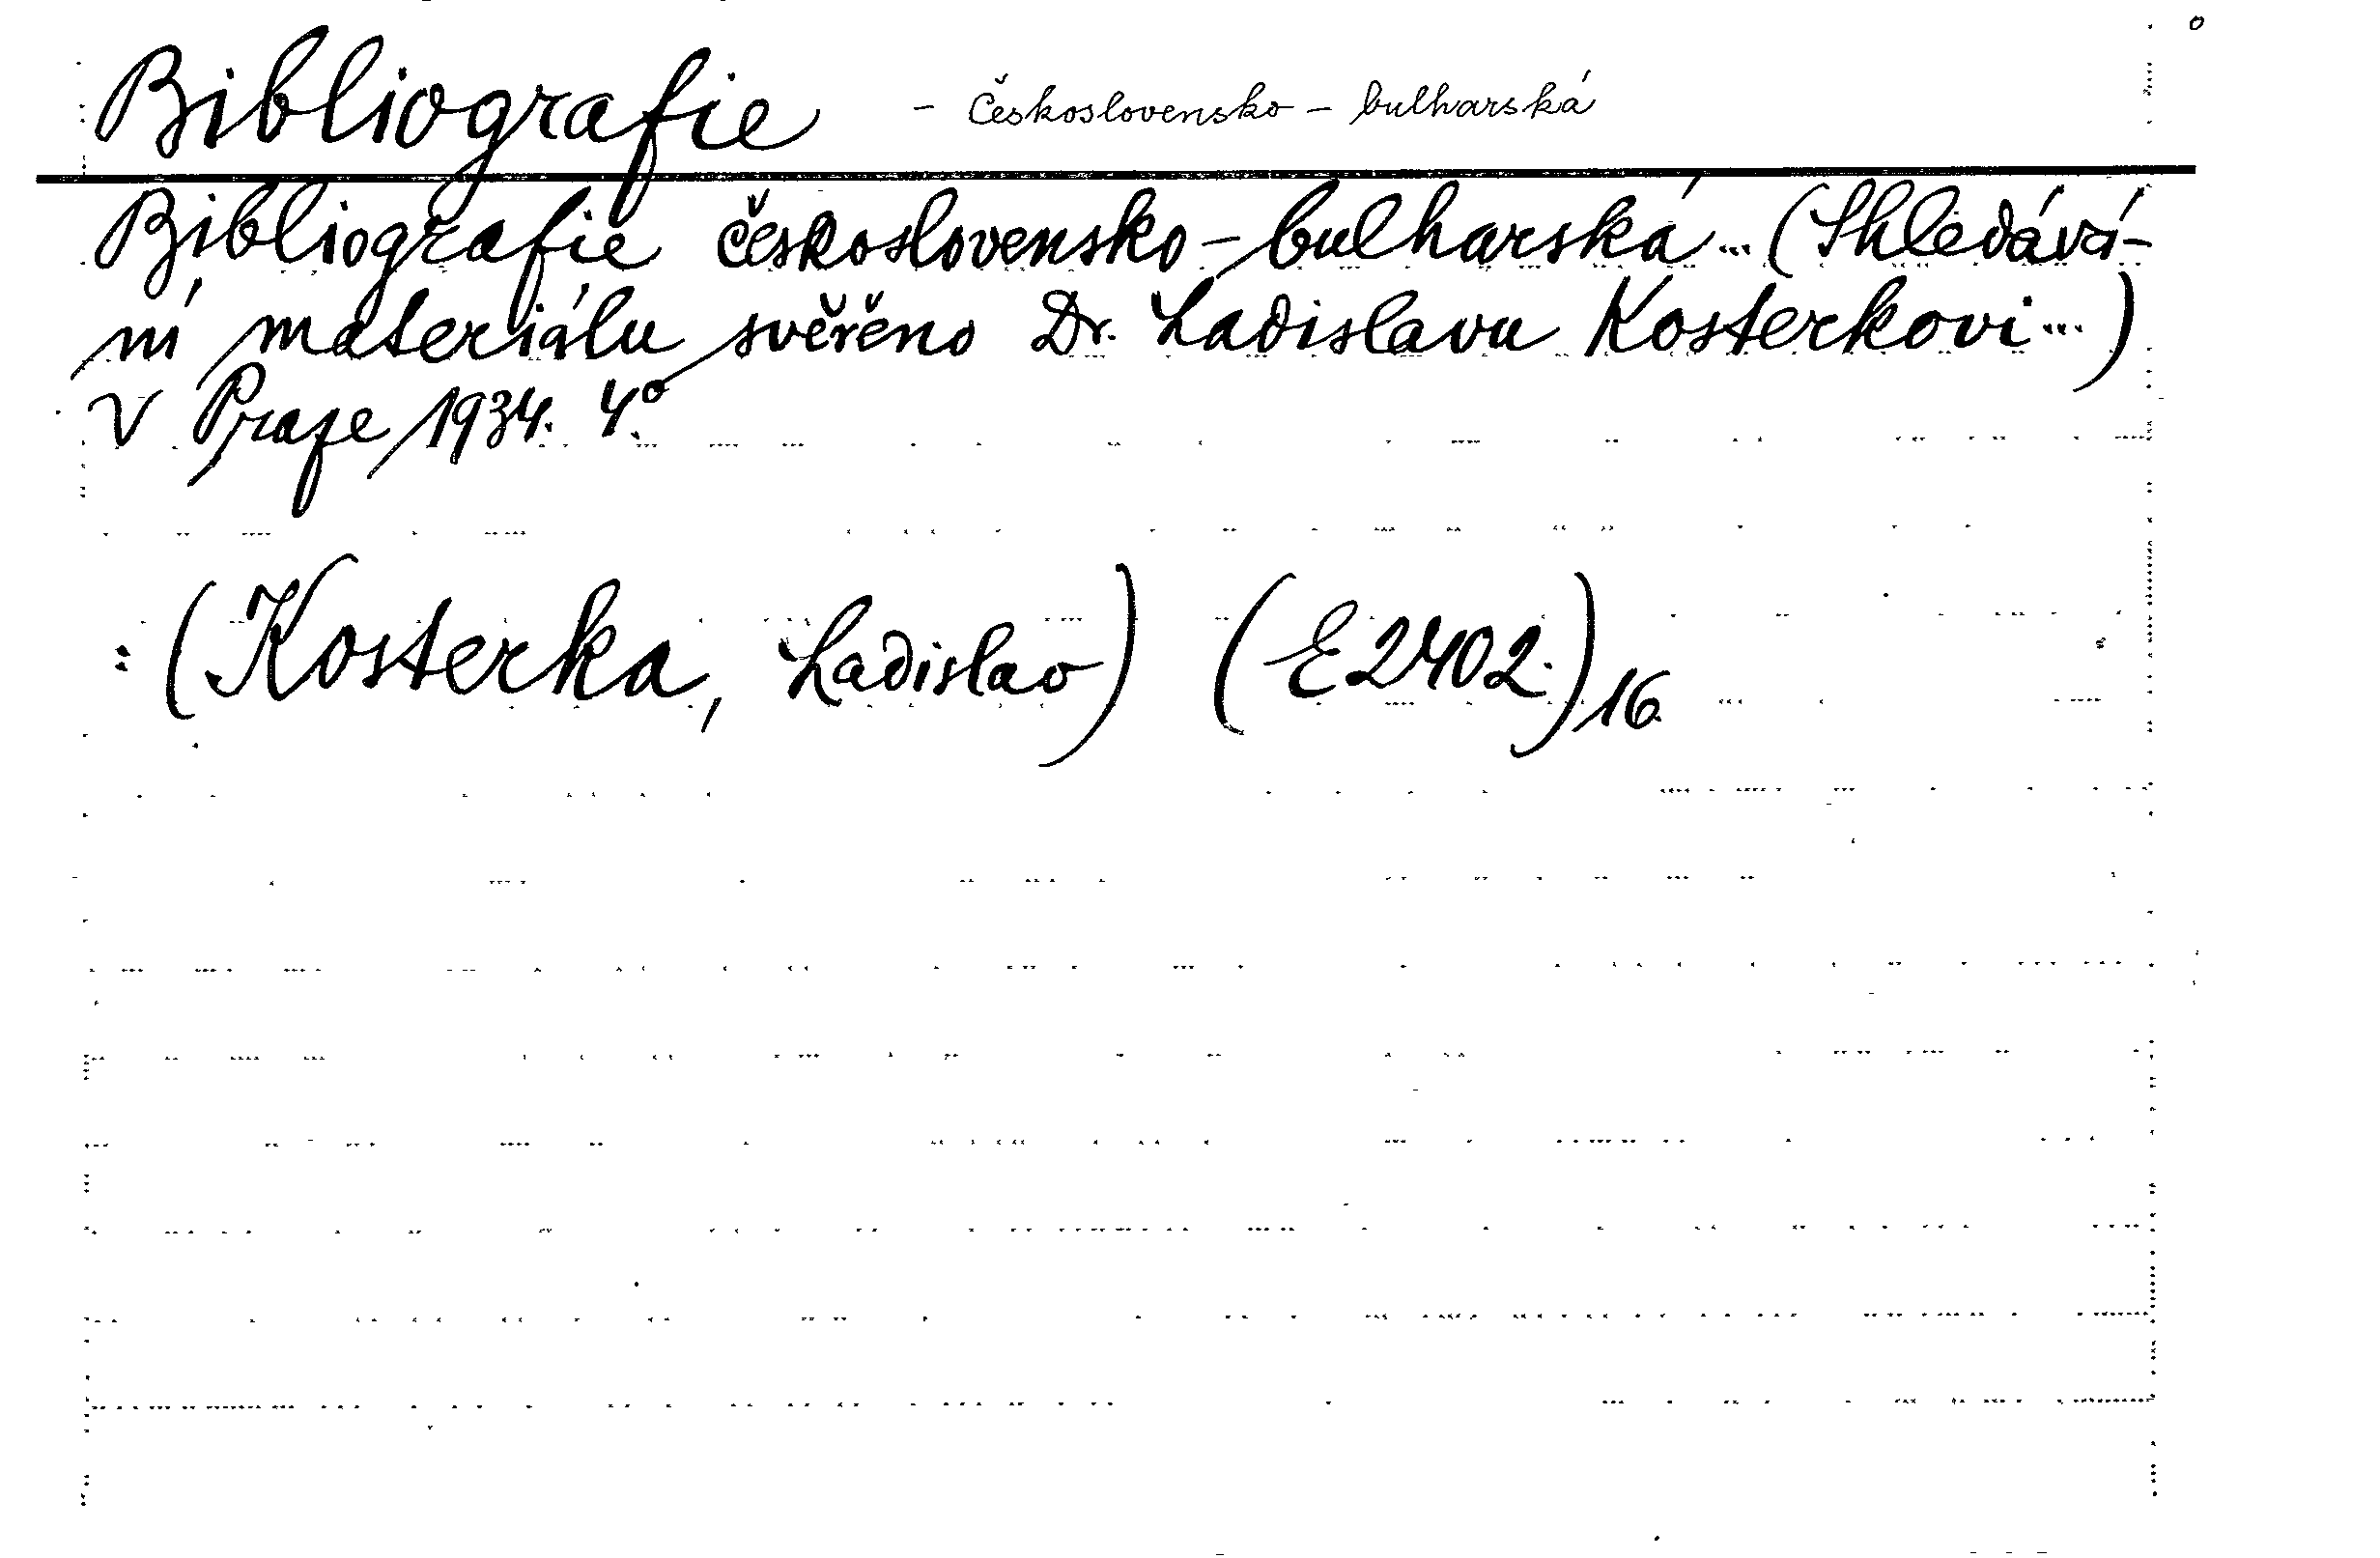 Bibliografie - Československo - bulharská
Bibliografie československo-bulharská... (Shledává-
ní materiálu svěřeno Dr. Ladislavu Kosterkovi...)
V Praze 1934. 4°.
: (Kosterka, Ladislav) (E 2402.) 16.